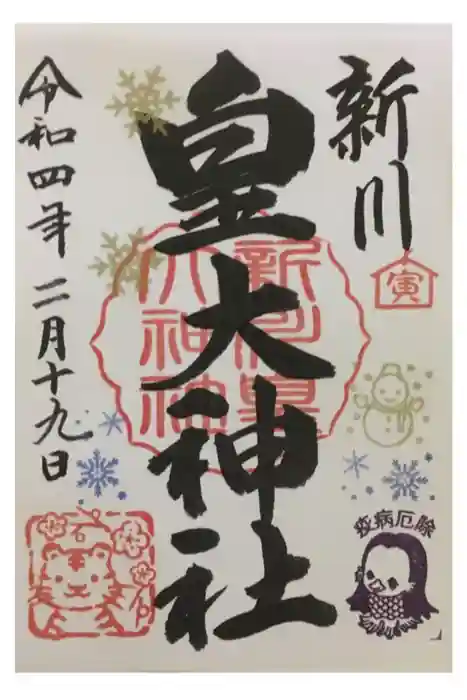 新川
寅
皇大神社
新川皇
大神社
令和四年二月十九日
疫病厄除